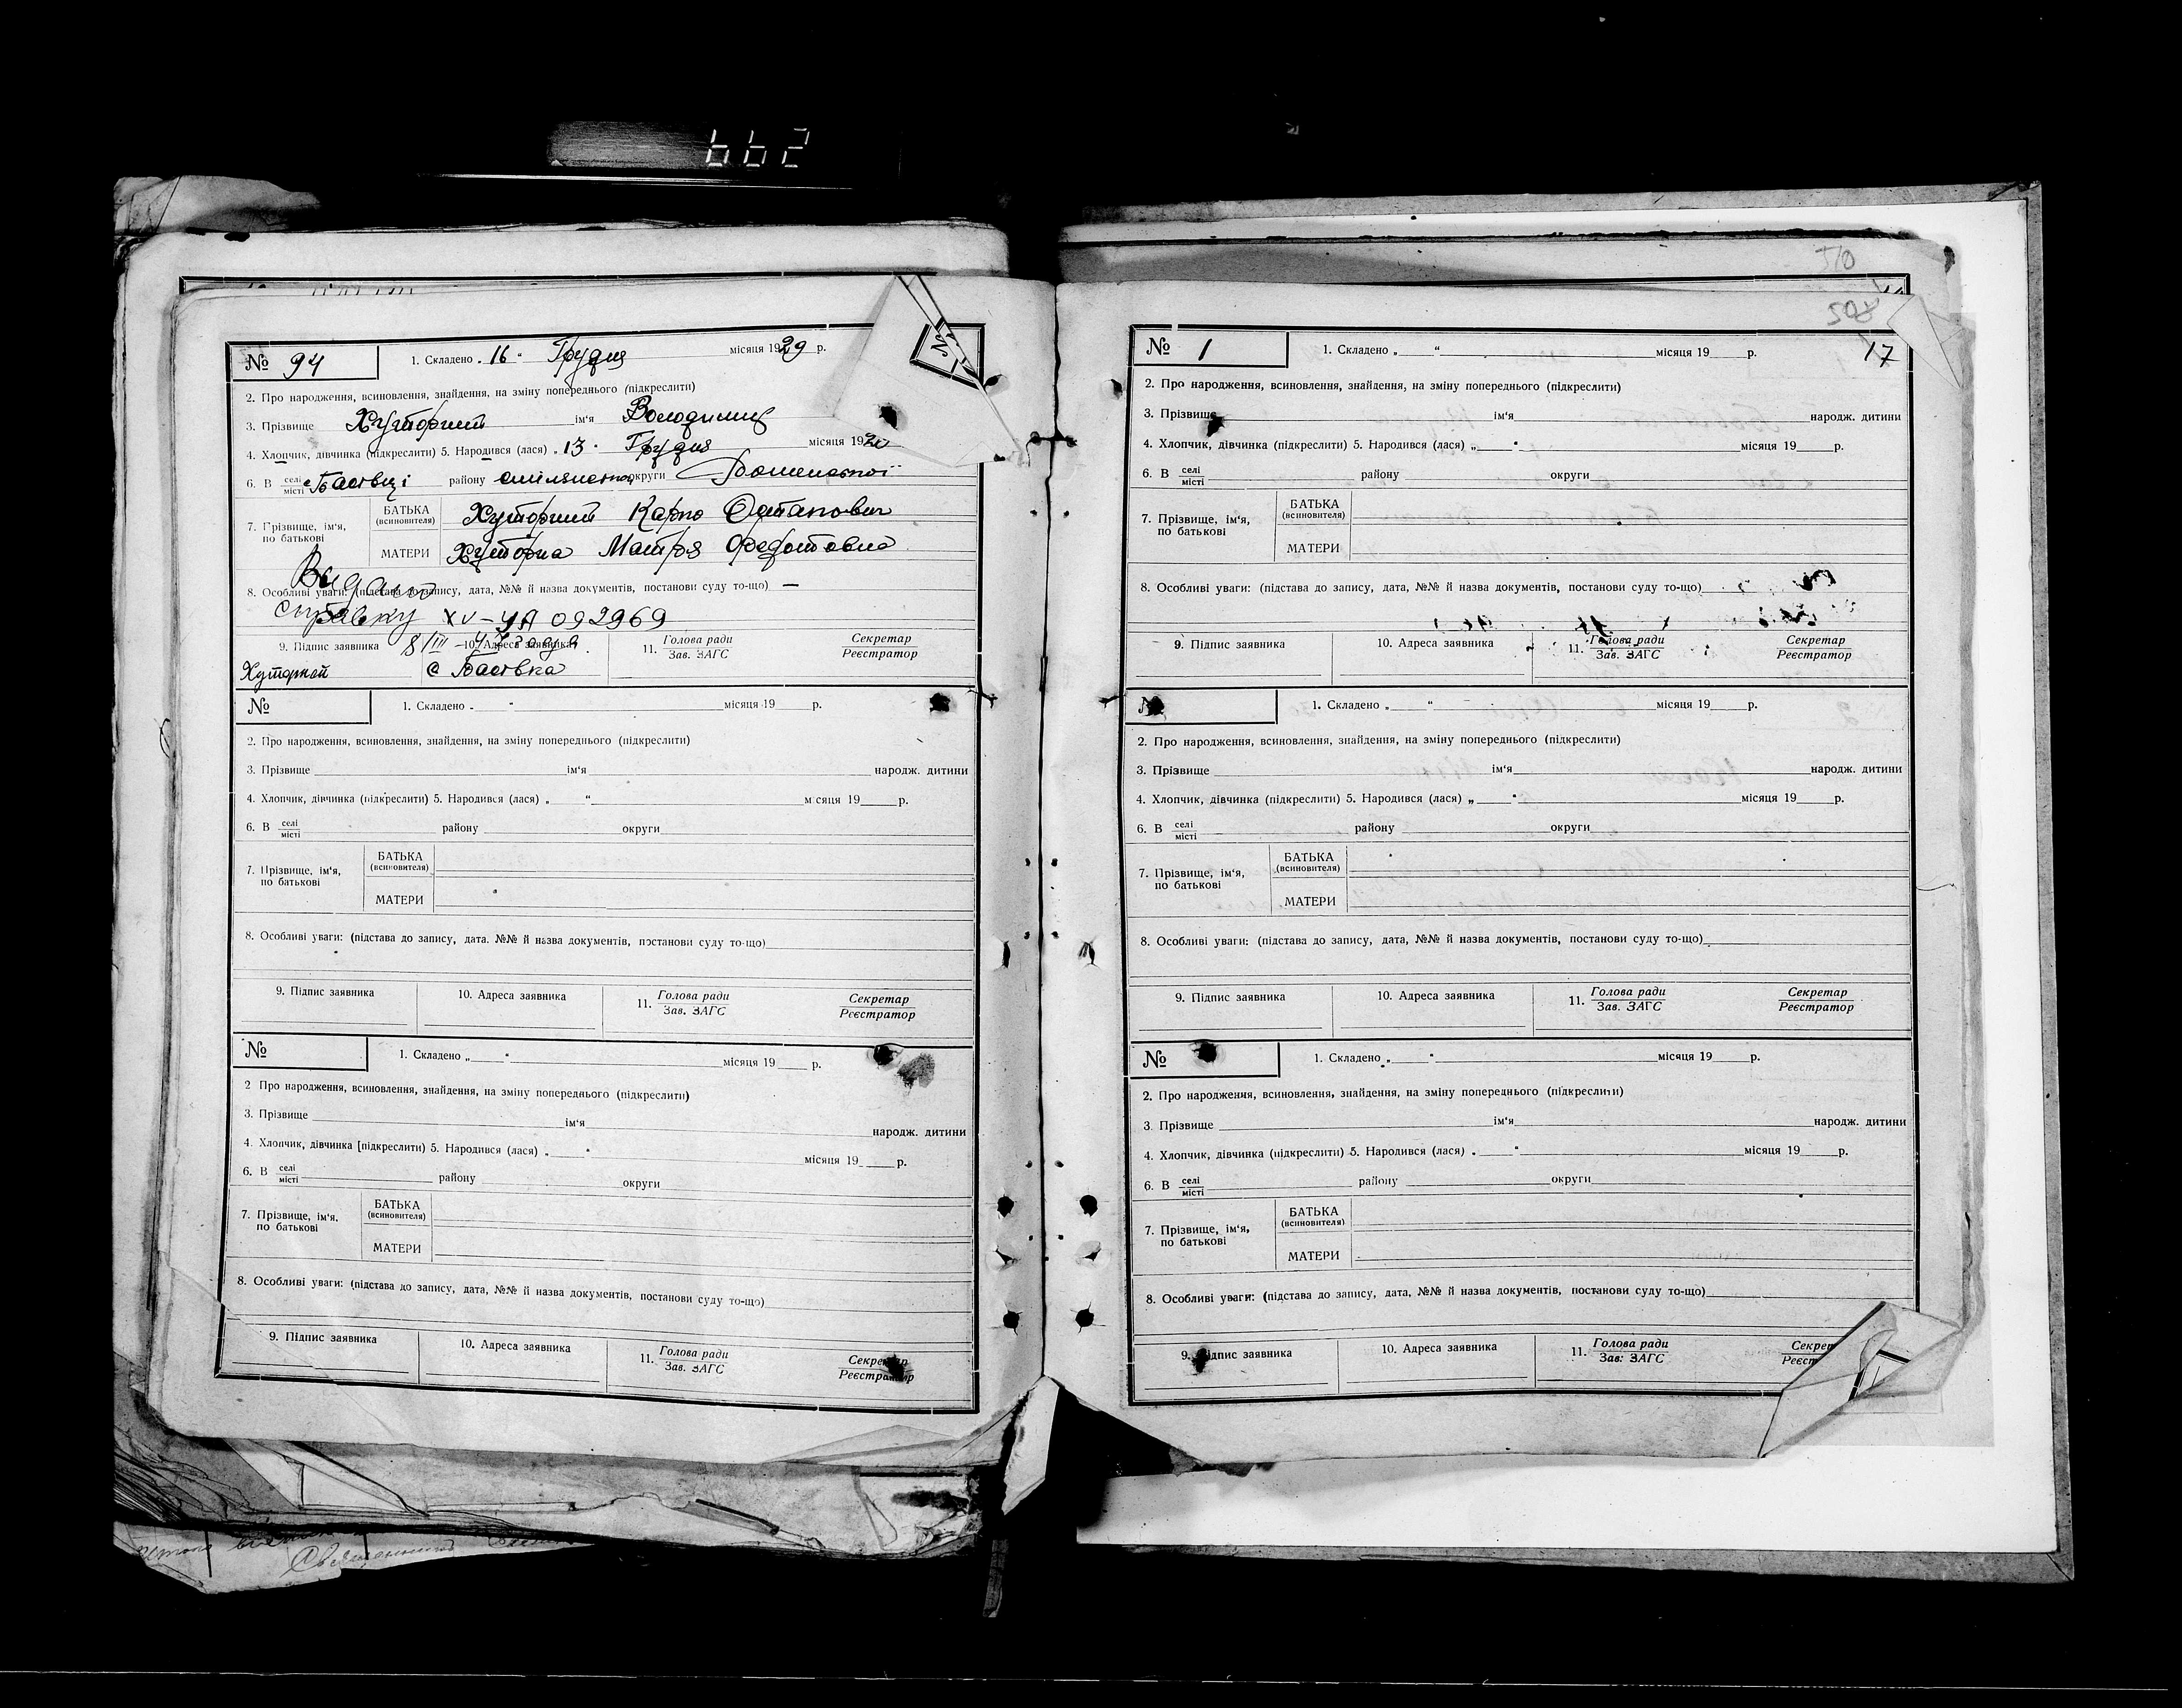 662
№ 94 1. Складено „ 16 “ Грудня місяця 1929 р.
2. Про народження, всиновлення, знайдення, на зміну попереднього (підкреслити)
3. Прізвище Хуторний ім'я Володимир
4. Хлопчик, дівчинка (підкреслити) 5. Народився (лася) „ 13 “ Грудня місяця 19
6. В селі/місті Баствці району округи
7. Прізвище, ім'я, по батькові БАТЬКА (всиновителя) Хуторний Карпо Остапович
МАТЕРИ Хуторна Мотря Федотовна
Видано
8. Особливі уваги: (підстава до запису, дата, №№ й назва документів, постанови суду то-що) —
справку XV-УА 092969
9. Підпис заявника 8/III 10. Адреса заявника 11. Голова ради/Зав. ЗАГС Секретар/Реєстратор
Хуторной с Баствка
№ 1. Складено „ “ місяця 19 р.
2. Про народження, всиновлення, знайдення, на зміну попереднього (підкреслити)
3. Прізвище ім'я народж. дитини
4. Хлопчик, дівчинка (підкреслити) 5. Народився (лася) „ “ місяця 19 р.
6. В селі/місті району округи
7. Прізвище, ім'я, по батькові БАТЬКА (всиновителя)
МАТЕРИ
8. Особливі уваги: (підстава до запису, дата. №№ й назва документів, постанови суду то-що)
9. Підпис заявника 10. Адреса заявника 11. Голова ради/Зав. ЗАГС Секретар/Реєстратор
№ 1. Складено „ “ місяця 19 р.
2 Про народження, всиновлення, знайдення, на зміну попереднього (підкреслити)
3. Прізвище ім'я народж. дитини
4. Хлопчик, дівчинка [підкреслити) 5. Народився (лася) „ “ місяця 19 р.
6. В селі/місті району округи
7. Прізвище, ім'я, по батькові БАТЬКА (всиновителя)
МАТЕРИ
8. Особливі уваги: (підстава до запису, дата, №№ й назва документів, постанови суду то-що)
9. Підпис заявника 10. Адреса заявника 11. Голова ради/Зав. ЗАГС Секретар/Реєстратор
№ 1 1. Складено „ “ місяця 19 р. 17
2. Про народження, всиновлення, знайдення, на зміну попереднього (підкреслити)
3. Прізвище ім'я народж. дитини
4. Хлопчик, дівчинка (підкреслити) 5. Народився (лася) „ “ місяця 19 р.
6. В селі/місті району округи
7. Прізвище, ім'я, по батькові БАТЬКА (всиновителя)
МАТЕРИ
8. Особливі уваги: (підстава до запису, дата, №№ й назва документів, постанови суду то-що)
9. Підпис заявника 10. Адреса заявника 11. Голова ради/Зав. ЗАГС Секретар/Реєстратор
№ 1. Складено „ “ місяця 19 р.
2. Про народження, всиновлення, знайдення, на зміну попереднього (підкреслити)
3. Прізвище ім'я народж. дитини
4. Хлопчик, дівчинка (підкреслити) 5. Народився (лася) „ “ місяця 19 р.
6. В селі/місті району округи
7. Прізвище, ім'я, по батькові БАТЬКА (всиновителя)
МАТЕРИ
8. Особливі уваги: (підстава до запису, дата, №№ й назва документів, постанови суду то-що)
9. Підпис заявника 10. Адреса заявника 11. Голова ради/Зав. ЗАГС Секретар/Реєстратор
№ 1. Складено „ “ місяця 19 р.
2. Про народження, всиновлення, знайдення, на зміну попереднього (підкреслити)
3. Прізвище ім'я народж. дитини
4. Хлопчик, дівчинка (підкреслити) 5. Народився (лася) „ “ місяця 19 р.
6. В селі/місті району округи
7. Прізвище, ім'я, по батькові БАТЬКА (всиновителя)
МАТЕРИ
8. Особливі уваги: (підстава до запису, дата, №№ й назва документів, постанови суду то-що)
9. Підпис заявника 10. Адреса заявника 11. Голова ради/Зав. ЗАГС